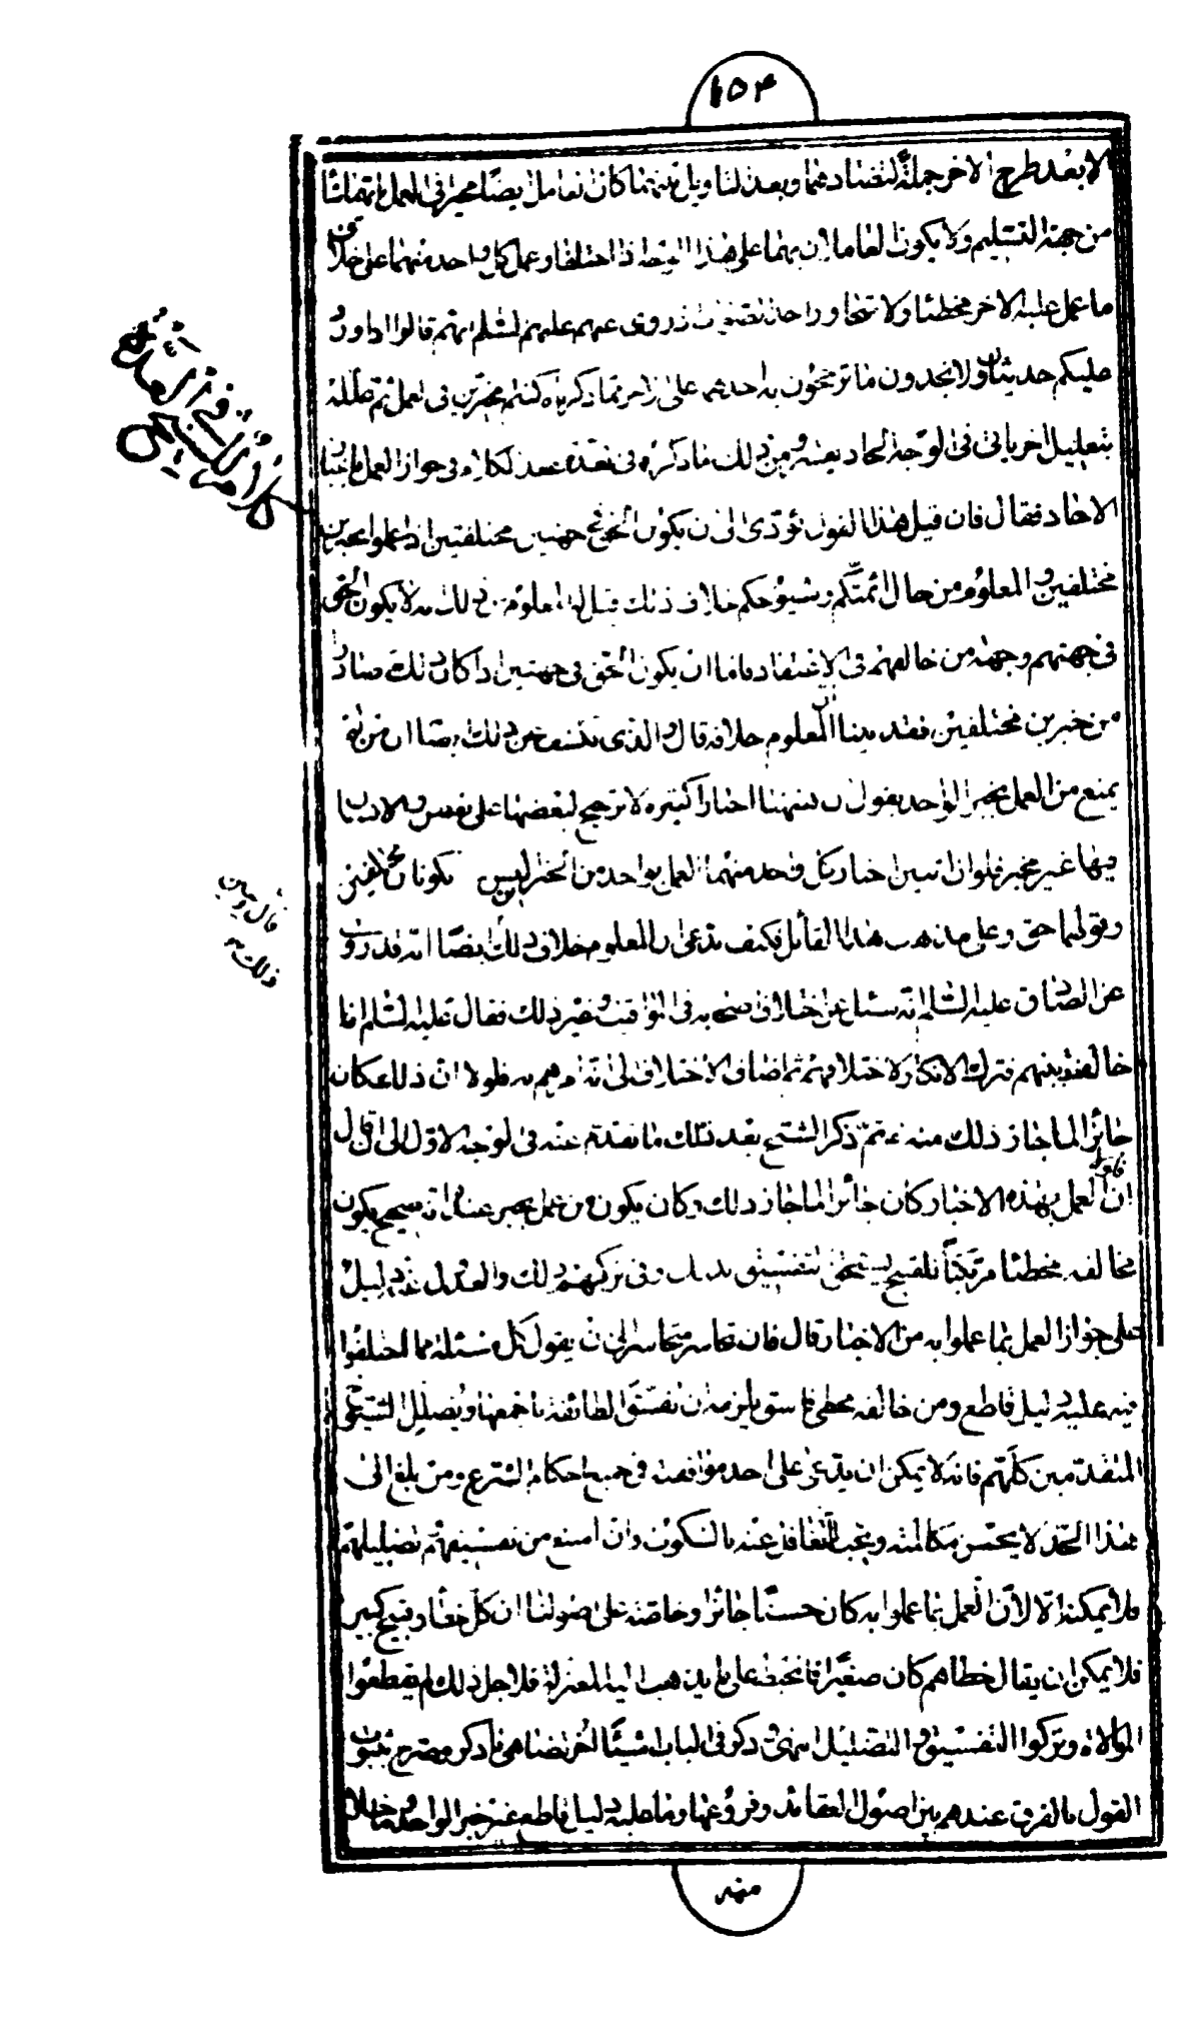 ١٥٤
الا بعد طرح الاخر جملة لتضادهما وبعد التاويل بينهما كان العامل ايضا مخيرا فى العمل بايهما شاء
من جهة التسليم ولا يكون العاملان بهما على هذا الوجه اذا اختلفا وعمل كل واحد منهما على خلاف
ما عمل عليه الاخر مخطئا ولا متجاوزا حد الصواب اذ روى عنهم عليهم السلم انهم قالوا اذا ورد
عليكم حديثان ولا تجدون ما ترجحون به احدهما على الاخر مما ذكرناه كنتم مخيرين فى العمل ثم علله
بتعليل اخر ياتى فى الوجه الحادى عشر ومن ذلك ما ذكره فى العدة عند الكلام فى جواز العمل باخبار
الاحاد فقال فان قيل هذا القول يؤدى الى ان يكون الحق فى جهتين مختلفتين اذا عملوا بخبرين
مختلفين والمعلوم من حال ائمتكم وشيوخكم خلاف ذلك قيل له المعلوم من ذلك انه لا يكون الحق
فى جهتهم وجهة من خالفهم فى الاعتقاد فاما ان يكون الحق فى جهتين اذا كان ذلك صادرا
من خبرين مختلفين فقد بينا ان المعلوم خلافه قال والذى يكشف عن ذلك ايضا ان من
يمنع من العمل بخبر الواحد يقول ان ههنا اخبارا كثيرة لا ترجيح لبعضها على بعض والانسان
فيها غير مخير فلو ان اثنين اختار كل واحد منهما العمل بواحد من الخبرين اليس يكونان مختلفين
وقولهما حق وعلى مذهب هذا القائل فكيف يدعى ان المعلوم خلاف ذلك ايضا انه قد روى
عن الصادق عليه السلم انه سئل عن اختلاف اصحابه فى المواقيت وغير ذلك فقال عليه السلم انا
خالفت بينهم فترك الانكار لاختلافهم ثم اضاف الاختلاف الى انه امرهم به فلولا ان ذلك كان
جائزا لما جاز ذلك منه ع ثم ذكر الشيخ بعد ذلك ما تقدم عنه فى الوجه الاول الى ان قال
ان العمل بهذه الاخبار كان جائزا لما جاز ذلك وكان يكون من عمل بخبر عنده انه صحيح يكون
مخالفه مخطئا مرتكبا للقبيح يستحق التفسيق بذلك وفى تركهم ذلك والعدول عنه دليل
على جواز العمل بما عملوا به من الاخبار قال فان تجاسر متجاسر الى ان يقول كل مسئلة مما اختلفوا
فيه عليه دليل قاطع ومن خالفه مخطئ فاسق يلزمه ان يفسق الطائفة باجمعها ويضلل الشيوخ
المتقدمين كلهم فانه لا يمكن ان يدعى على احد موافقته فى جميع احكام الشرع ومن بلغ الى
هذا الحد لا يحسن مكالمته ويجب التغافل عنه بالسكوت وان امتنع من تفسيقهم وتضليلهم
فلا يمكنه الا لان العمل بما عملوا به كان حسنا جائزا وخاصة على اصولنا ان كل خطاء وقبيح كبير
فلا يمكن ان يقال خطاهم كان صغيرا فانحبط على ما يذهب اليه المعتزلة فلاجل ذلك لم يقطعوا
الموالاة وتركوا التفسيق والتضليل انتهى وذكر فى الباب اشياء اخر تضاهى ما ذكر ومصرح بثبوت
القول بالفرق عندهم بين اصول العقائد وفروعها وما عليه دليل قاطع غير خبر الواحد وما خلا
منه
قال وتبين
ذلك به